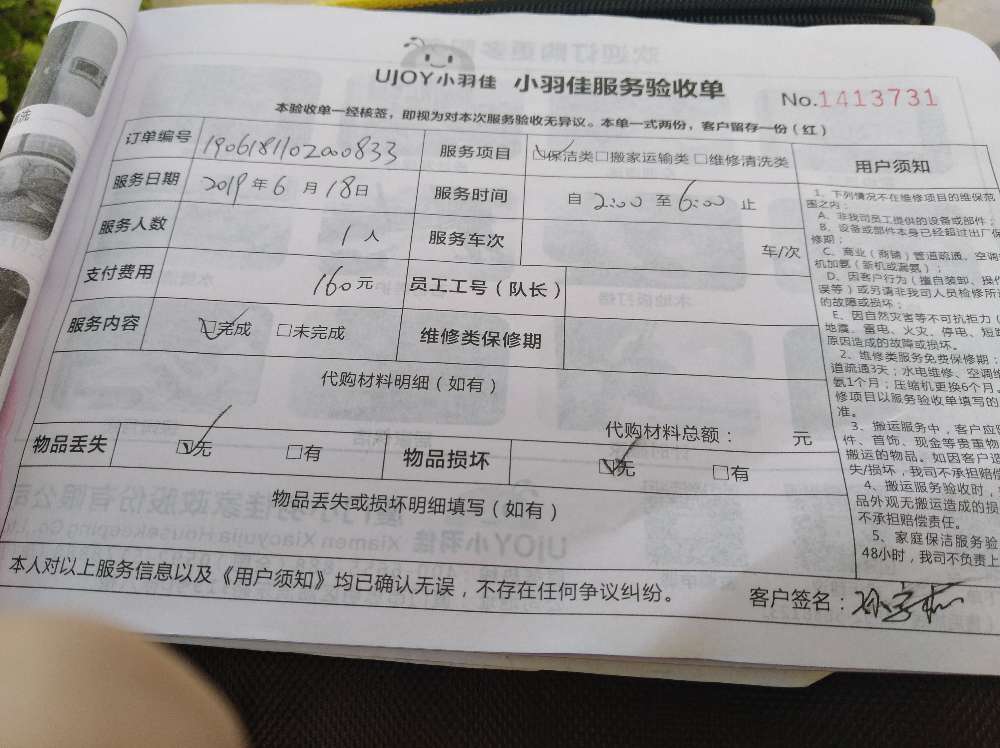 UJOY小羽佳 小羽佳服务验收单
No.1413731
本验收单一经核签，即视为对本次服务验收无异议。本单一式两份，客户留存一份（红）
订单编号 1906181102000833 服务项目 ☑保洁类□搬家运输类□维修清洗类
服务日期 2019年6月18日 服务时间 自 2:00 至 6:00 止
服务人数 1人 服务车次 车/次
支付费用 160元 员工工号（队长）
服务内容 ☑完成 □未完成 维修类保修期
代购材料明细（如有）
代购材料总额： 元
物品丢失 ☑无 □有 物品损坏 ☑无 □有
物品丢失或损坏明细填写（如有）
本人对以上服务信息以及《用户须知》均已确认无误，不存在任何争议纠纷。
客户签名：
用户须知
1、下列情况不在维修项目的维保范
围之内：
A、非我司员工提供的设备或部件；
B、设备或部件本身已经超过出厂保
修期；
C、商业（商铺）管道疏通、空调
机加氨（新机或漏氨）；
D、因客户行为（擅自装卸、操作
误等）或另请非我司人员检修所
的故障或损坏；
E、因自然灾害等不可抗拒力（
地震、雷电、火灾、停电、短路
原因造成的故障或损坏。
2、维修类服务免费保修期：
道疏通3天；水电维修、空调维
氨1个月；压缩机更换6个月。
修项目以服务验收单填写的
准。
3、搬运服务中，客户应
件、首饰、现金等贵重物
搬运的物品。如因客户
失/损坏，我司不承担赔偿
4、搬运服务验收时，
品外观无搬运造成的损
不承担赔偿责任。
5、家庭保洁服务验
48小时，我司不负责上